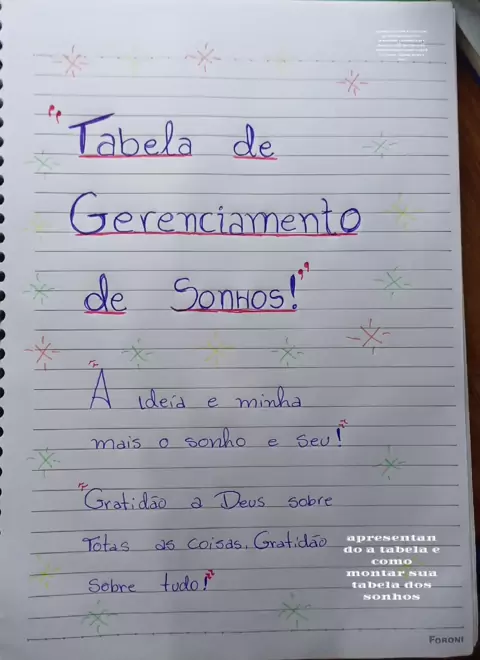 "Tabela de
Gerenciamento
de Sonhos!"
"A ideia e minha
mais o sonho e seu!"
"Gratidão a Deus sobre
Totas as coisas. Gratidão
sobre tudo!"
apresentan
do a tabela e
como
montar sua
tabela dos
sonhos
FORONI